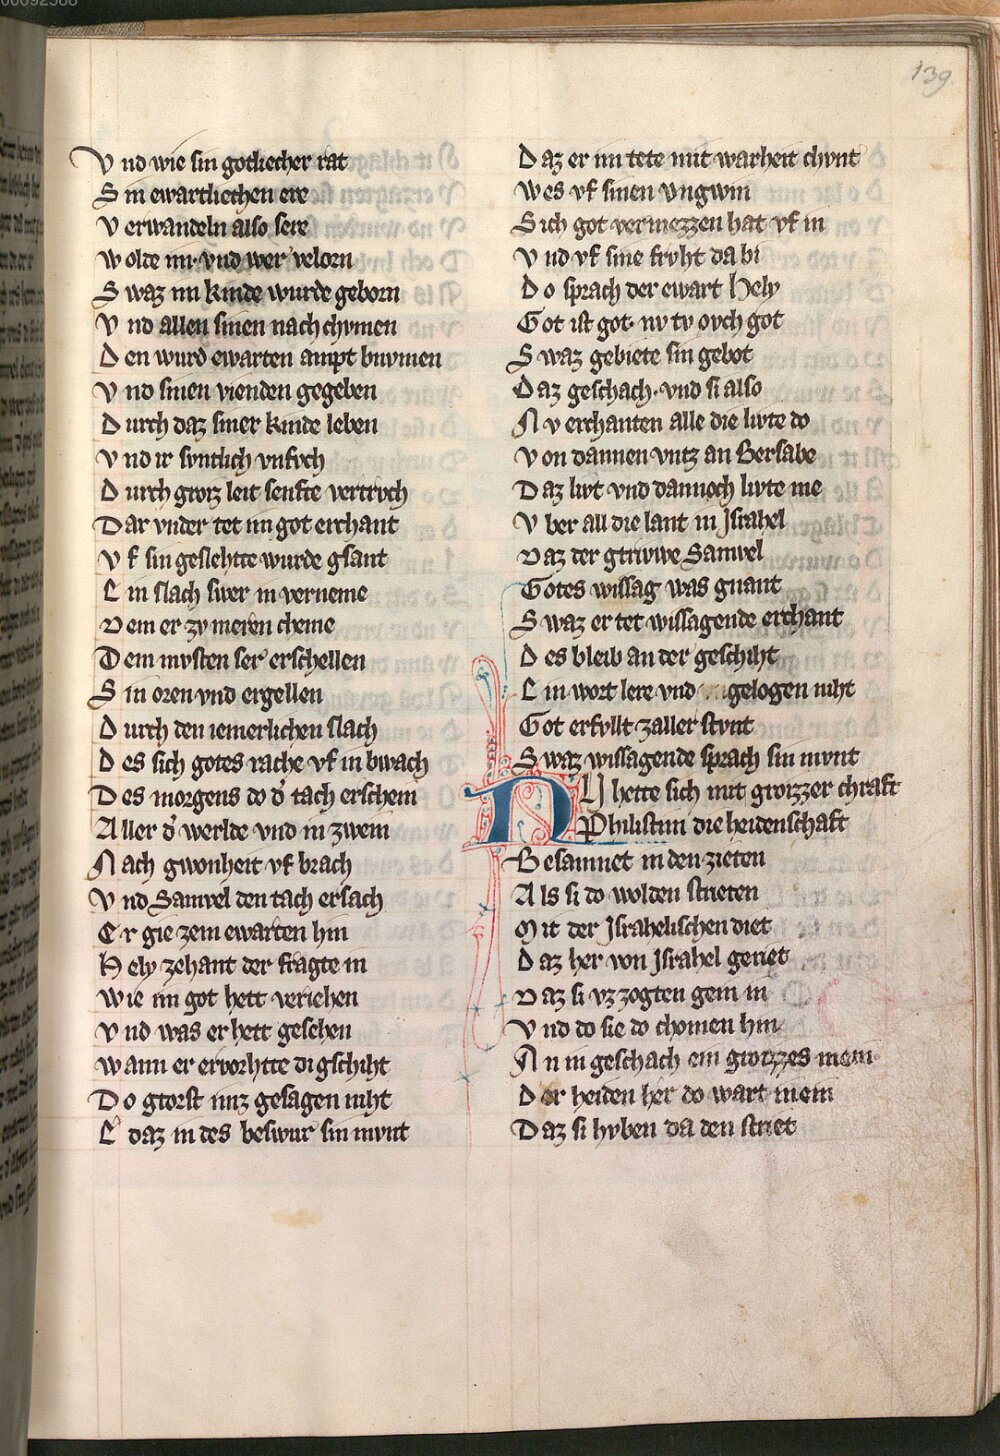 00092588
139
Vnd wie sin gotliecher rat
Sin ewartliechen ere
Verwandeln also sere
Wolde im· vnd wer velorn
Swaz im kinde wurde geborn
Vnd allen sinen nach chvmen
Den wurd ewarten ampt bnvmen
Vnd sinen vienden gegeben
Durch daz siner kinde leben
Vnd ir svntlich vnfvch
Durch groz leit senfte vertrvch
Dar vnder tet im got erchant
Vf sin geslehtte wurde gsant
Ein slach swer in verneme
Dem er zv meren cheme
Dem mvsten ser erschellen
Sin oren vnd ergellen
Durch den iemerlichen slach
Des sich gotes rache vf in bwach
Des morgens do d' tach erschein
Aller d' werlde vnd in zwein
Nach gwonheit vf brach
Vnd Samvel den tach ersach
Er gie zem ewarten hin
Hely zehant der fragte in
Wie im got hett veriehen
Vnd was er hett gesehen
Wann er ervorhtte di gschiht
Do gtorst imz gesagen niht
E daz in des beswur sin mvnt
Daz er im tete mit warheit chvnt
Wes vf sinen vngwin
Sich got vermezzen hat vf in
Vnd vf sine frvht da bi
Do sprach der ewart Hely
Got ist got· nv tv ovch got
Swaz gebiete sin gebot
Daz geschach· vnd si also
Nv erchanten alle die livte do
Von dannen vntz an Bersabe
Daz livt vnd dannoch livte me
Vber all die lant in Jsrahel
Daz der gtriwe Samvel
Gotes wissag was gnant
Swaz er tet wissagende erchant
Des bleib an der geschiht
Ein wort lere vnd gelogen niht
Got erfvllt zaller stvnt
Swaz wissagende sprach sin mvnt
NV hette sich mit grozzer chraft
Philistim die heidenschaft
Besamnet in den zieten
Als si do wolden strieten
Mit der Jsrahelischen diet
Daz her von Jsrahel geriet
Daz si vz zogten gein in
Vnd do sie do chomen hin
An in geschach ein grozzes mein
Der heiden her do wart inein
Daz si hvben da den striet